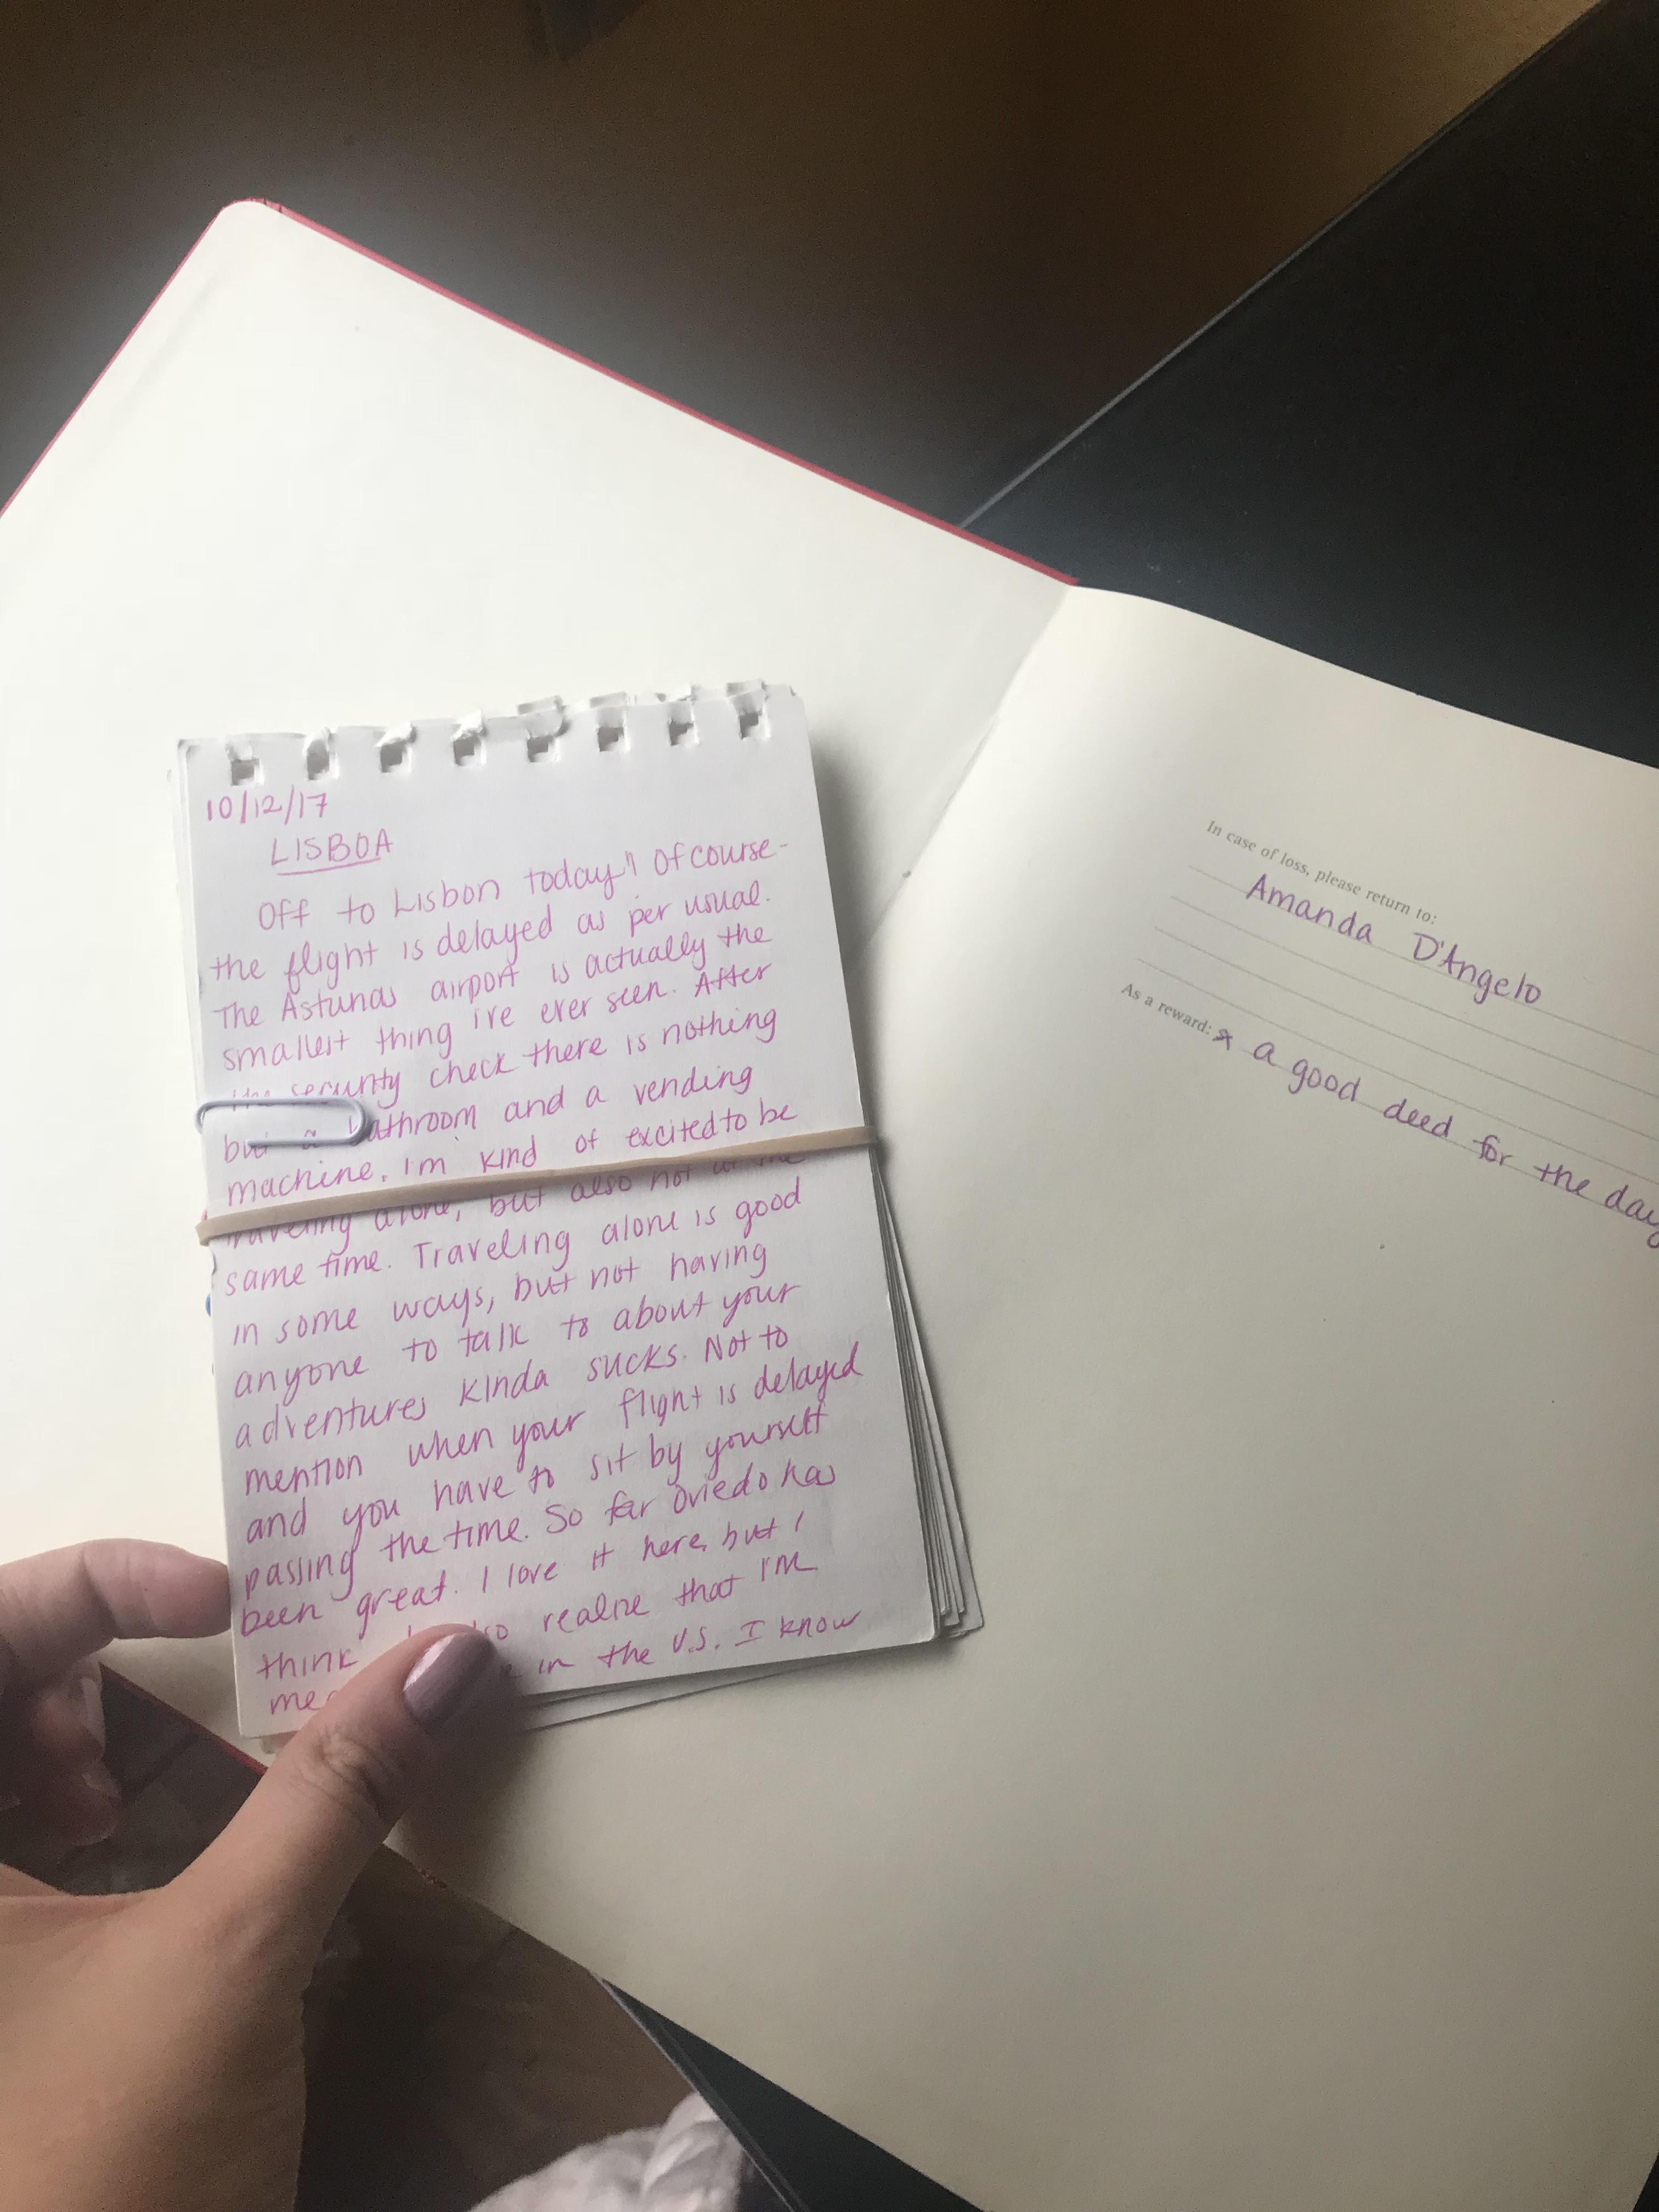 10/12/17
LISBOA
Off to Lisbon today!! Of course-
the flight is delayed as per usual.
The Asturias airport is actually the
smallest thing i've ever seen. After
the security check there is nothing
but a bathroom and a vending
machine. I'm kind of excited to be
traveling alone, but also not at the
same time. Traveling alone is good
in some ways, but not having
anyone to talk to about your
adventures kinda sucks. Not to
mention when your flight is delayed
and you have to sit by yourself
passing the time. So far Oviedo has
been great. I love it here, but I
think realize that I'm
in the U.S. I know
In case of loss, please return to:
Amanda D'Angelo
As a reward: a good deed for the day